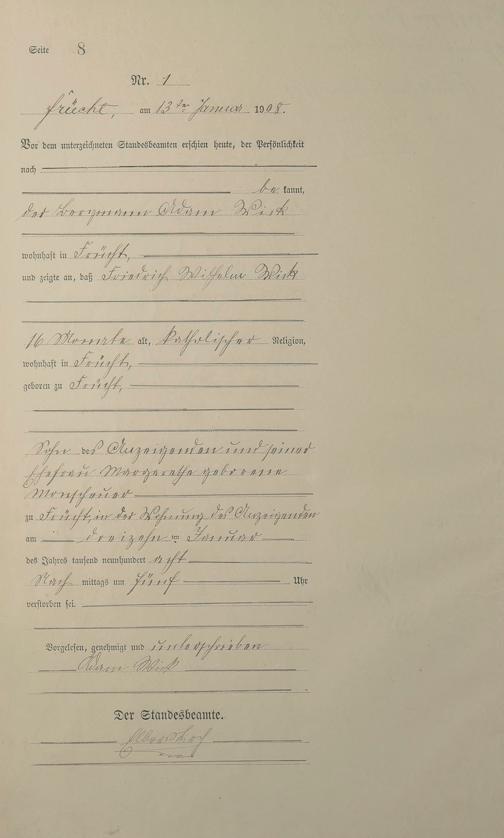 Seite 8
Nr. 1
Frücht, am 13ten Januar 1908.
Vor dem unterzeichneten Standesbeamten erschien heute, der Persönlichkeit
nach
be kannt,
der Bergmann Adam Wick
wohnhaft in Frücht,
und zeigte an, daß Friedrich Wilhelm Wick
16 Monate alt, katholischer Religion,
wohnhaft in Frücht,
geboren zu Frücht,
Sohn des Anzeigenden und seiner
Ehefrau Margarethe geborene
Monschauer
zu Frücht, in der Wohnung des Anzeigenden
am dreizehn ten Januar
des Jahres tausend neunhundert acht
Nach mittags um fünf Uhr
verstorben sei.
Vorgelesen, genehmigt und unterschrieben
Adam Wick
Der Standesbeamte.